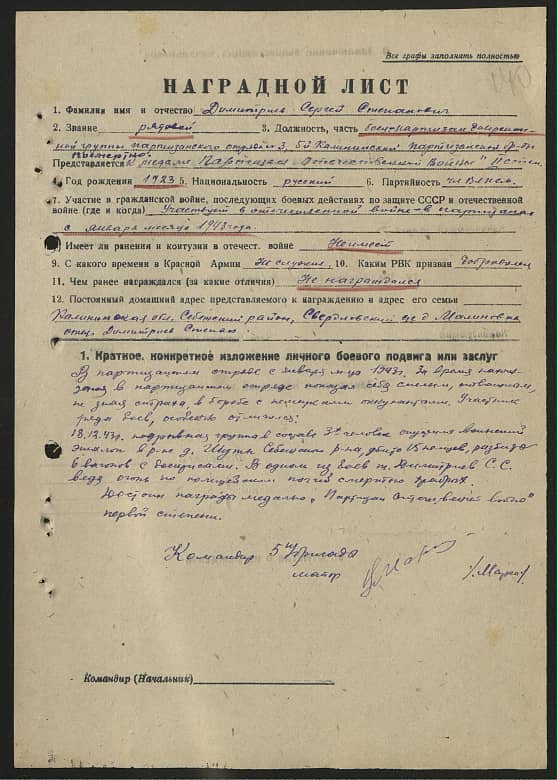 Все графы заполнять полностью
140
НАГРАДНОЙ ЛИСТ
1. Фамилия имя и отчество Димитриев Сергей Степанович
2. Звание рядовой 3. Должность, часть боец партизан диверсион-
ной группы партизанского отряда №3, 5й Калининской партизанской бр-ды
посмертно
Представляется к медали "Партизан Отечественной войны" I степ.
4. Год рождения 1923 5. Национальность русский 6. Партийность чл. ВЛКСМ.
7. Участие в гражданской войне, последующих боевых действиях по защите СССР и отечественной
войне (где и когда) Участвует в отечественной войне в партизанах
с января месяца 1943 года.
8. Имеет ли ранения и контузии в отечест. войне Не имеет
9. С какого времени в Красной Армии Не служил 10. Каким РВК призван доброволец
11. Чем ранее награждался (за какие отличия) Не награждался
12. Постоянный домашний адрес представляемого к награждению и адрес его семьи
Калининская обл. Себежский район, Свердловский с/с д. Малиновка
отец. Димитриев Степан
1. Краткое, конкретное изложение личного боевого подвига или заслуг
В партизанском отряде с января м-ца 1943г. За время нахож-
дения в партизанском отряде показал себя смелым, отважным,
не зная страха в борьбе с немецкими оккупантами. Участник
ряда боев, особенно отличился:
18.12.43г. подрывная группа в составе 3х человек спустила воинский
эшелон в р-не д. Себежского р-на убито 15 немцев, разбито
6 вагонов с боеприпасами. В одном из боев т. Димитриев С.С.
ведя огонь по полицейским погиб смертью храбрых.
Достоин награды медалью "Партизан Отечественной войны"
первой степени.
Командир 5й бригады
майор /Марго/
Командир (Начальник)